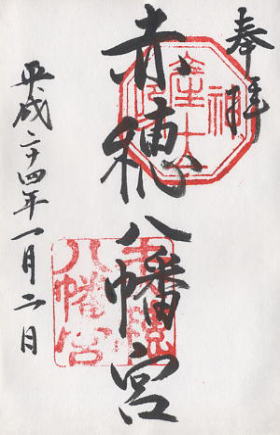 奉拝
赤穂八幡宮
平成二十四年一月二日